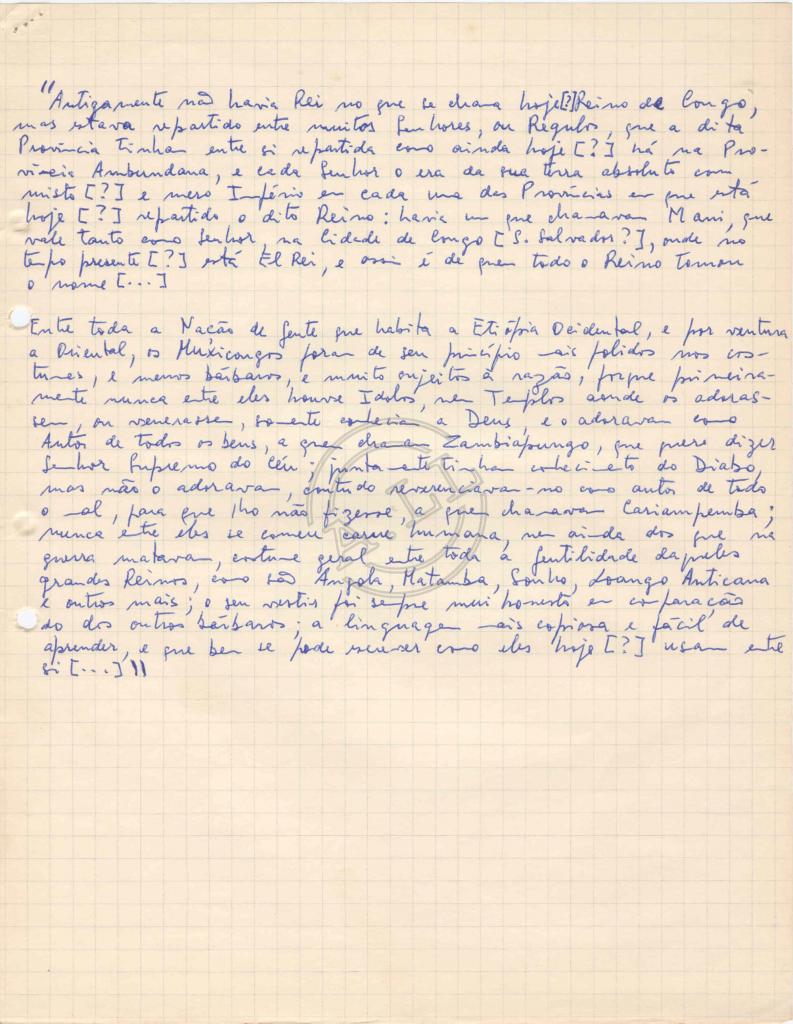 "Antigamente não havia Rei no que se chama hoje[?]Reino de Congo,
mas estava repartido entre muitos Senhores, ou Régulos, que a dita
Província tinham entre si repartida como ainda hoje [?] há na Pro-
víncia Ambundana, e cada Senhor o era da sua terra absoluto com
misto [?] e mero Império em cada uma das Províncias em que está
hoje [?] repartido o dito Reino: havia um que chamavam Mani, que
vale tanto como Senhor, na Cidade de Congo [S. Salvador?], onde no
tempo presente [?] está El Rei, e assim é de quem todo o Reino tomou
o nome [...]
Entre toda a Nação de Gente que habita a Etiópia Ocidental, e por ventura
a Oriental, os Muxicongos foram de seu princípio mais polidos nos cos-
tumes, e menos bárbaros, e muito sujeitos à razão, porque primeira-
mente nunca entre eles houve Idolos, nem Templos aonde os adoras-
sem, ou venerassem, somente conheciam a Deus, e o adoravam como
Autor de todos os bens, a quem chamam Zambiapungo, que quere dizer
Senhor Supremo do Céu: juntamente tinham conhecimento do Diabo,
mas não o adoravam, contudo reverenciavam-no como autor de todo
o mal, para que lho não fizesse, a quem chamavam Cariampemba;
nunca entre eles se comeu carne humana, nem ainda dos que na
guerra matavam, costume geral entre toda a Gentilidade daqueles
grandes Reinos, como são Angola, Matamba, Sonho, Loango Anticana
e outros mais; o seu vestir foi sempre mui honesto em comparação
do dos outros bárbaros; a linguagem mais copiosa e fácil de
aprender, e que bem se pode escrever como eles hoje [?] usam entre
si [...]"